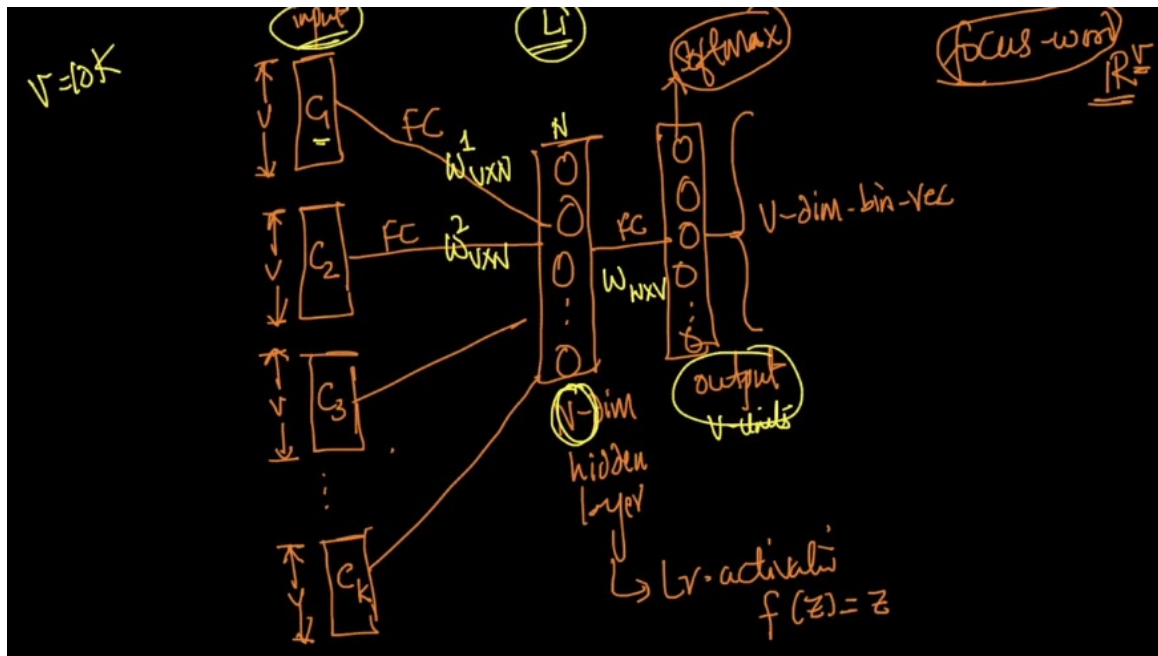 input
L1
softmax
focus-word
IR^V
V=10K
V
C1
FC
W^1 VXN
N
V
C2
FC
W^2 VXN
FC
W NXV
V-dim-bin-vec
V
C3
output
V-units
V-dim
hidden
layer
V
CK
Lr.activati
f(z)=z